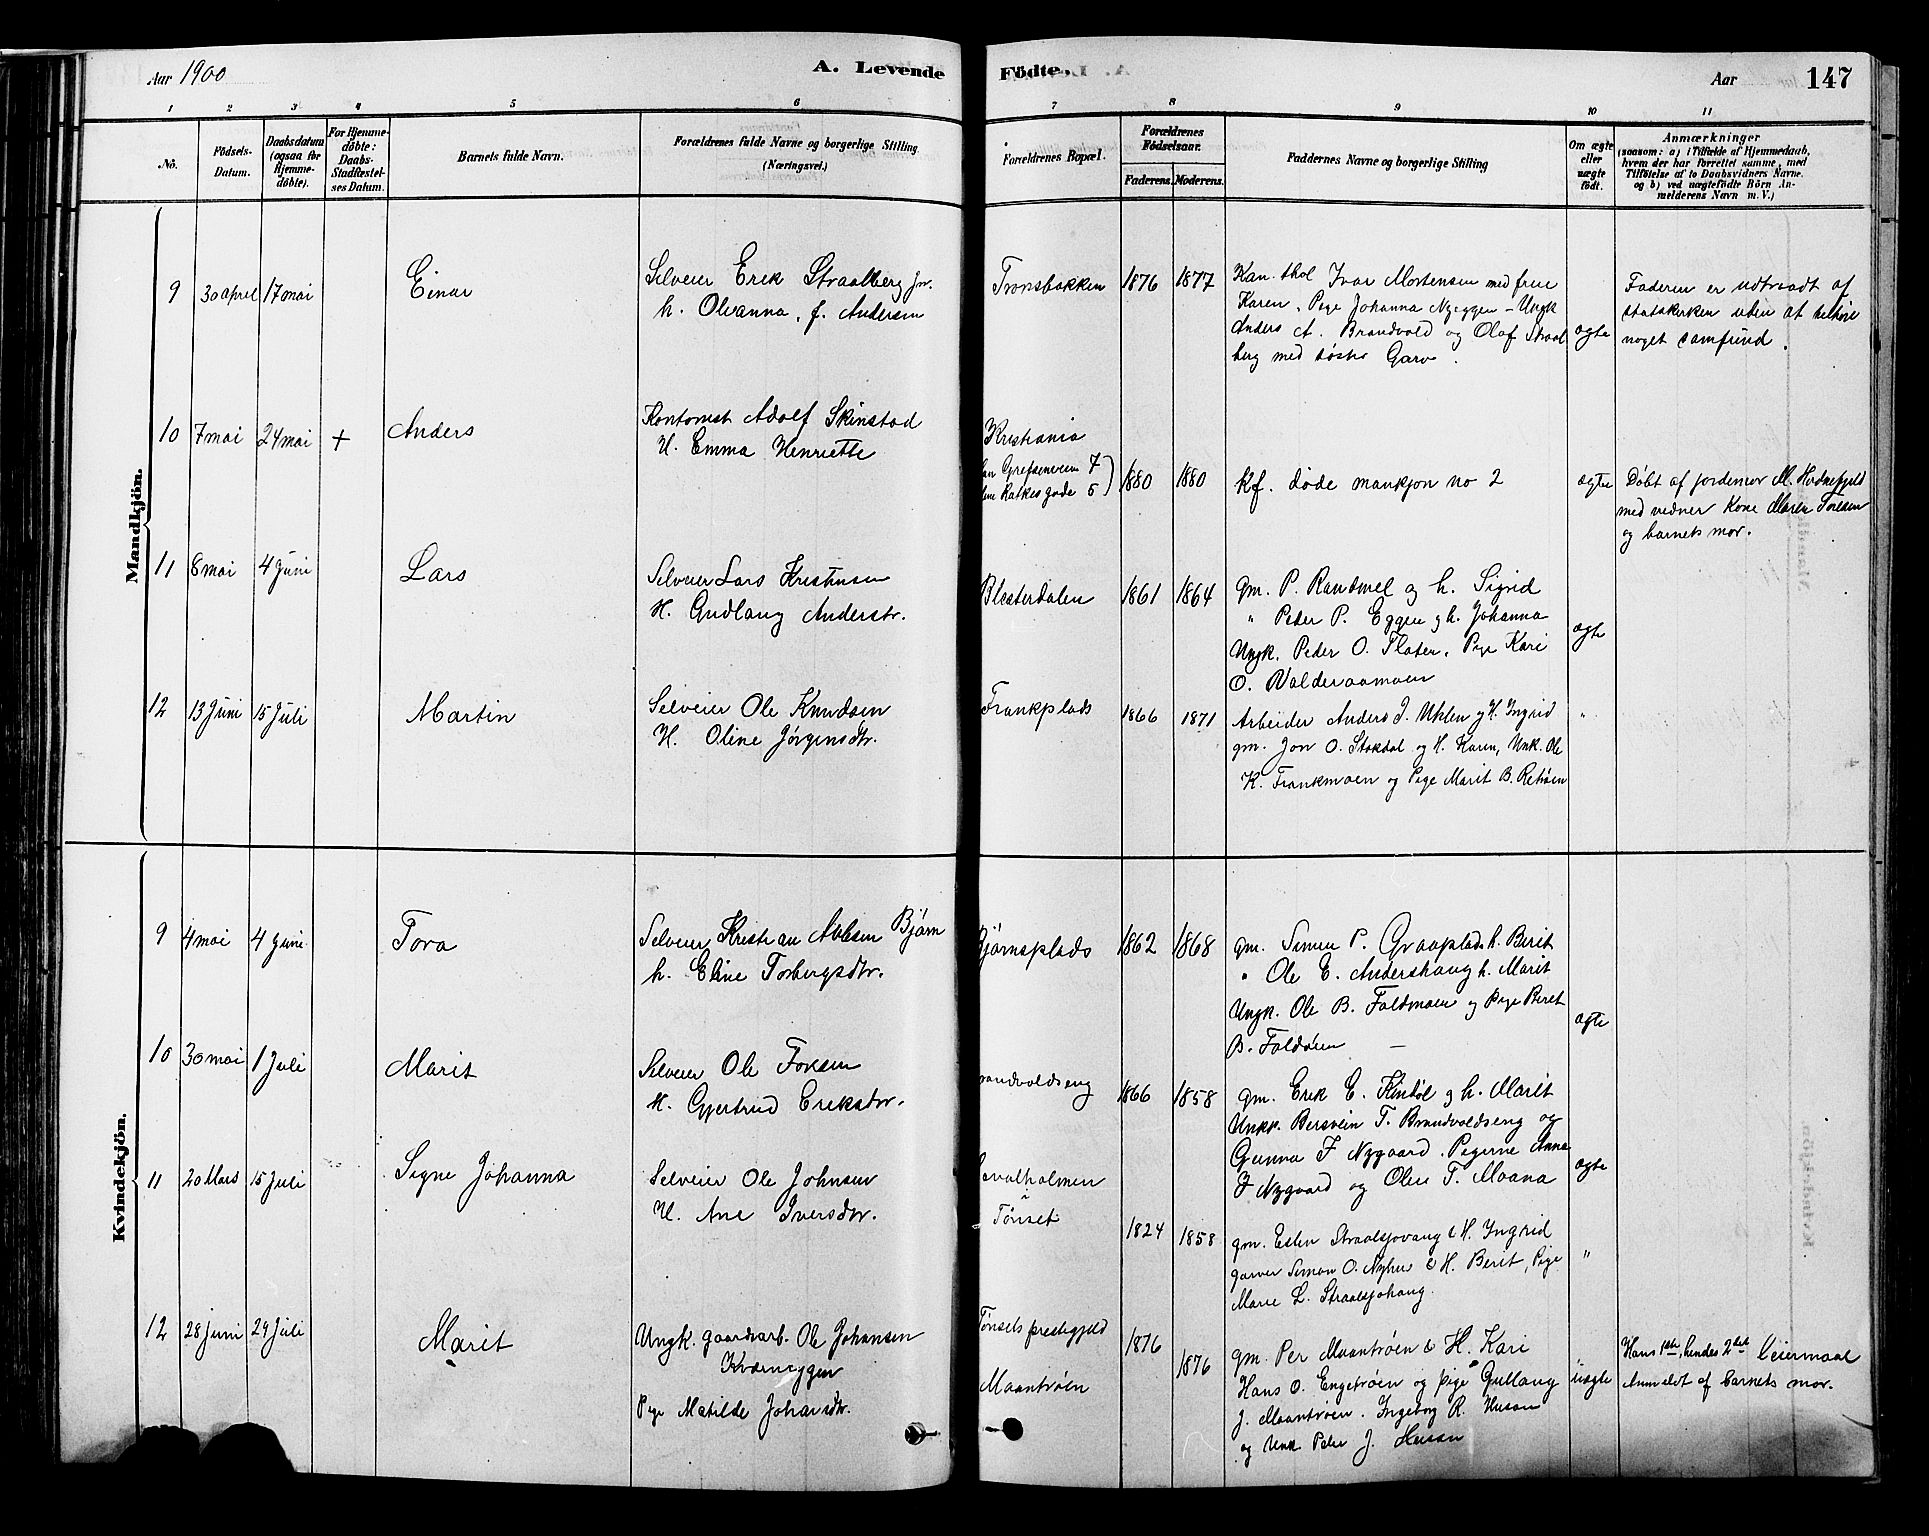 Aar 1900
A. Levende Födte.
Aar 147
1 2 3 4 5 6 7 8 9 10 11
No.
Födsels-
Datum.
Daabsdatum
(ogsaa for
Hjemme-
döbte).
For Hjemme-
döbte:
Daabs-
Stadfæstel-
ses Datum.
Barnets fulde Navn.
Forældrenes fulde Navne og borgerlige Stilling
(Næringsvei.)
Forældrenes Bopæl.
Forældrenes
Födselsaar.
Faderens. Moderens.
Faddernes Navne og borgerlige Stilling
Om ægte
eller
uægte
födt.
Anmærkninger
(saasom: a) i Tilfælde af Hjemmedaab,
hvem der har forrettet samme, med
Tilföielse af to Daabsvidners Navne.
og b) ved uægtefödte Börn An-
melderens Navn m. V.)
Mandkjön.
9 30 april 17 mai Einar
Selveier Erik Straalberg jr.
h. Olvanna, f. Andersen
Tronsbakken 1876 1877
Ivar Mortensen med frue
Karen, Pige Johanna Nyeggen - Ungk
Anders A. Brandvold og Olaf Straal
berg med søster Garv.
ægte
Faderen er udtraadt af
statskirken uden at tilhøre
noget samfund.
10 7 mai 24 mai + Anders
Kontorist Adolf Skinstad
H. Emma Henriette
Kristiania
Grefsenveien 7
Ratkesgade 5)
1880 1880
Kf. døde mankjøn no 2
ægte
Døbt af jordemor M. Hodnefjeld
med vidner Kone Maren Toresen
og barnets mor.
11 8 mai 4 Juni Lars
Selveier Lars Kristensen
H. Gudlaug Anderstr.
Blesterdalen 1861 1864
gm. P. Randmel og h. Sigrid
" Peder P. Eggen og h. Johanna
Ungk. Peder O. Floten, Pige Kari
O. Valderaamoen
ægte
12 13 Juni 15 Juli Martin
Selveier Ole Knudsen
H. Oline Jørgensdtr.
Frankplads 1866 1871
Arbeider Anders J. Uklen og H. Ingrid
gm. Jon O. Stokdal og H. Karen, Unk. Ole
K. Frankmoen og Pige Marit B. Retrøen
"
Kvindekjön.
9 4 mai 4 juni Tora
Selveier Kristian Bjørn
h. Eline Torbergsdtr.
Bjørnsplads 1862 1868
gm. Simen P. Graaplads h. Berit
" Ole E. Andershaug h. Marit
Ungk. Ole B. Foldmoen og Pige Beret
B. Foldøien -
ægte
10 30 mai 1 Juli Marit
Selveier Ole Toresen
H. Gjertrud Eriksdtr.
Brandvoldseng 1866 1858
gm. Erik E. Kindøl og h. Marit
Unkk. Bersvein T. Brandvoldseng og
Gunnar F Nygaard. Pigerne Anna
F Nygaard og Oline T. Moana
ægte
11 20 Mars 15 Juli Signe Johanna
Selveier Ole Johnsen
H. Ane Iversdtr.
Savalholmen
i
Tönset
1824 1858
gm. Esten Straalsjovang & H. Ingrid
garver Simon O. Nyhus & H. Berit, Pige
Marie L. Straalsjohaug.
"
12 28 juni 29 Juli Marit
Ungk. gaardsarb. Ole Johansen
Kværneggen
Pige Matilde Johansdtr.
Tönsets prestegjeld
Maantrøen
1876 1876
gm. Per Maantrøen & H. Kari
Hans O. Engetrøen og pige Gullaug
J. Maantrøen. Ingeborg R. Husan
og Unk Peder J. Husan
uægte
Hans 1ste, hendes 2det Leiermaal
Anmeldt af Barnets mor.